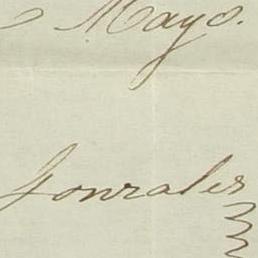 Mayo.
Gonzales